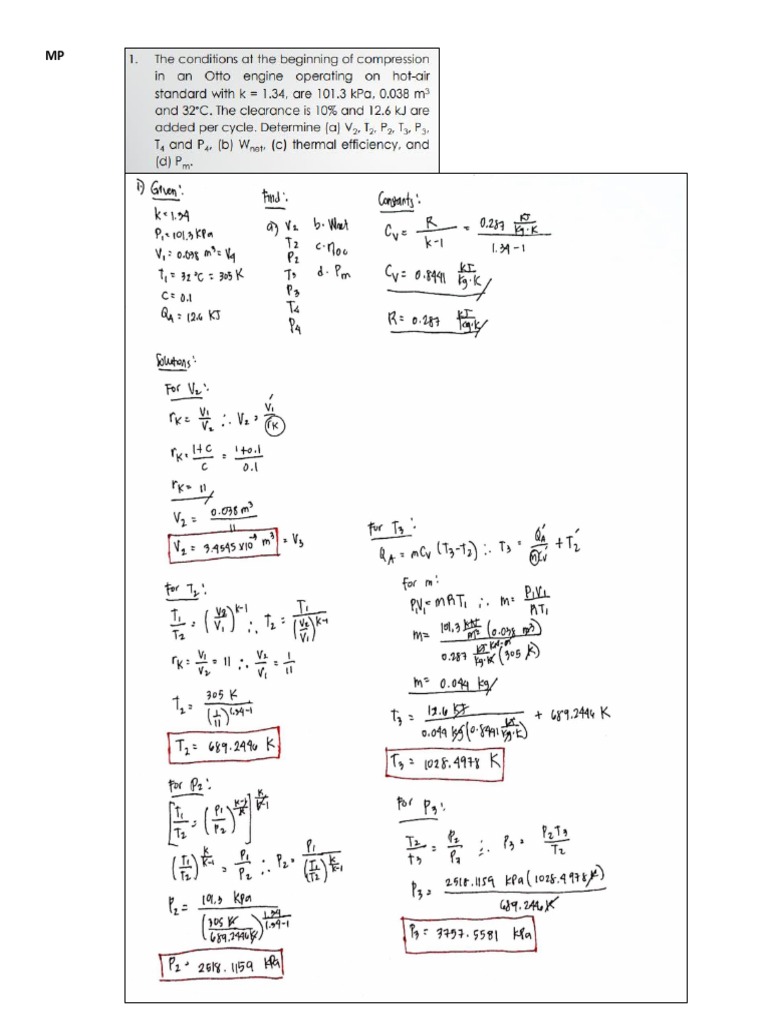 MP
1. The conditions at the beginning of compression
in an Otto engine operating on hot-air
standard with k = 1.34, are 101.3 kPa, 0.038 m³
and 32°C. The clearance is 10% and 12.6 kJ are
added per cycle. Determine (a) V₂, T₂, P₂, T₃, P₃,
T₄ and P₄, (b) Wnet, (c) thermal efficiency, and
(d) Pm.
1) Given:
k = 1.34
P₁ = 101.3 kPa
V₁ = 0.038 m³ = V₄
T₁ = 32 °C = 305 K
C = 0.1
QA = 12.6 KJ
Find:
a) V₂ b. Wnet
T₂ c. ηoc
P₂ d. Pm
T₃
P₃
T₄
P₄
Constants:
Cv = R / k-1 = 0.287 KJ/kg·K / 1.34-1
Cv = 0.8441 KJ/kg·K
R = 0.287 KJ/kg·K
Solutions:
For V₂:
rK = V₁/V₂ ∴ V₂ = V₁/rK
rK = 1+C / C = 1+0.1 / 0.1
rK = 11
V₂ = 0.038 m³ / 11
V₂ = 3.4545 x10⁻³ m³ = V₃
For T₂:
T₁/T₂ = (V₂/V₁)^k-1 ∴ T₂ = T₁ / (V₂/V₁)^k-1
rK = V₁/V₂ = 11 ∴ V₂/V₁ = 1/11
T₂ = 305 K / (1/11)^1.34-1
T₂ = 689.2446 K
For P₂:
[T₁/T₂ = (P₁/P₂)^k-1/k]^k/k-1
(T₁/T₂)^k/k-1 = P₁/P₂ ∴ P₂ = P₁ / (T₁/T₂)^k/k-1
P₂ = 101.3 kPa / (305 K / 689.2446 K)^1.34/1.34-1
P₂ = 2518.1159 kPa
For T₃:
QA = mCv (T₃-T₂) ∴ T₃ = QA/mCv + T₂
for m:
P₁V₁ = mRT₁ ∴ m = P₁V₁ / RT₁
m = 101.3 KN/m² (0.038 m³) / 0.287 KJ KN-m/kg·K (305 K)
m = 0.044 kg
T₃ = 12.6 KJ / 0.044 kg (0.8441 KJ/kg·K) + 689.2446 K
T₃ = 1028.4978 K
For P₃:
T₂/T₃ = P₂/P₃ ∴ P₃ = P₂T₃ / T₂
P₃ = 2518.1159 kPa (1028.4978 K) / 689.246 K
P₃ = 3757.5581 kPa